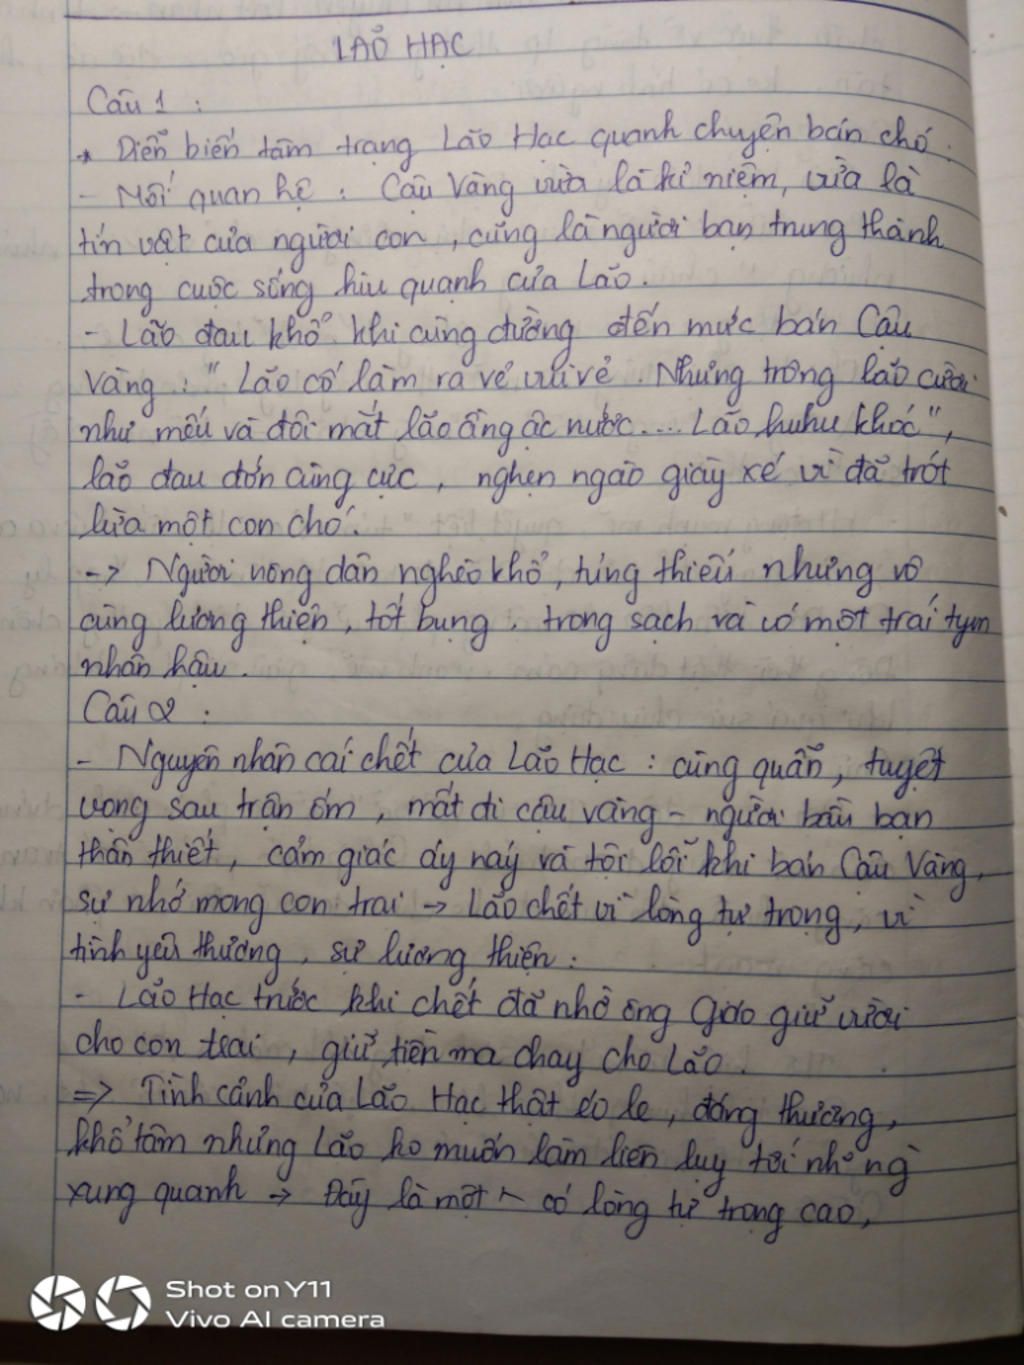 LÃO HẠC
Câu 1 :
* Diễn biến tâm trạng Lão Hạc quanh chuyện bán chó.
- Mối quan hệ : Cậu Vàng vừa là kỉ niệm, vừa là
tín vật của người con, cũng là người bạn trung thành
trong cuộc sống hiu quạnh của Lão.
- Lão đau khổ khi cùng đường đến mức bán Cậu
Vàng : " Lão cố làm ra vẻ vui vẻ. Nhưng trông lão cười
như mếu và đôi mắt lão ầng ậc nước.... Lão huhu khóc",
lão đau đớn cùng cực, nghẹn ngào giày xé vì đã trót
lừa một con chó.
-> Người nông dân nghèo khổ, túng thiếu nhưng vô
cùng lương thiện, tốt bụng, trong sạch và có một trái tym
nhân hậu.
Câu 2 :
- Nguyên nhân cái chết của Lão Hạc : cùng quẫn, tuyệt
vọng sau trận ốm, mất đi cậu vàng - người bầu bạn
thân thiết, cảm giác áy náy và tội lỗi khi bán Cậu Vàng,
sự nhớ mong con trai -> Lão chết vì lòng tự trọng, vì
tình yêu thương, sự lương thiện.
- Lão Hạc trước khi chết đã nhờ ông Giáo giữ vườn
cho con trai, giữ tiền ma chay cho Lão.
=> Tình cảnh của Lão Hạc thật éo le, đáng thương,
khổ tâm nhưng Lão ko muốn làm liên lụy tới nh~ ng
xung quanh -> Đây là một ng có lòng tự trọng cao,
Shot on Y11
Vivo AI camera